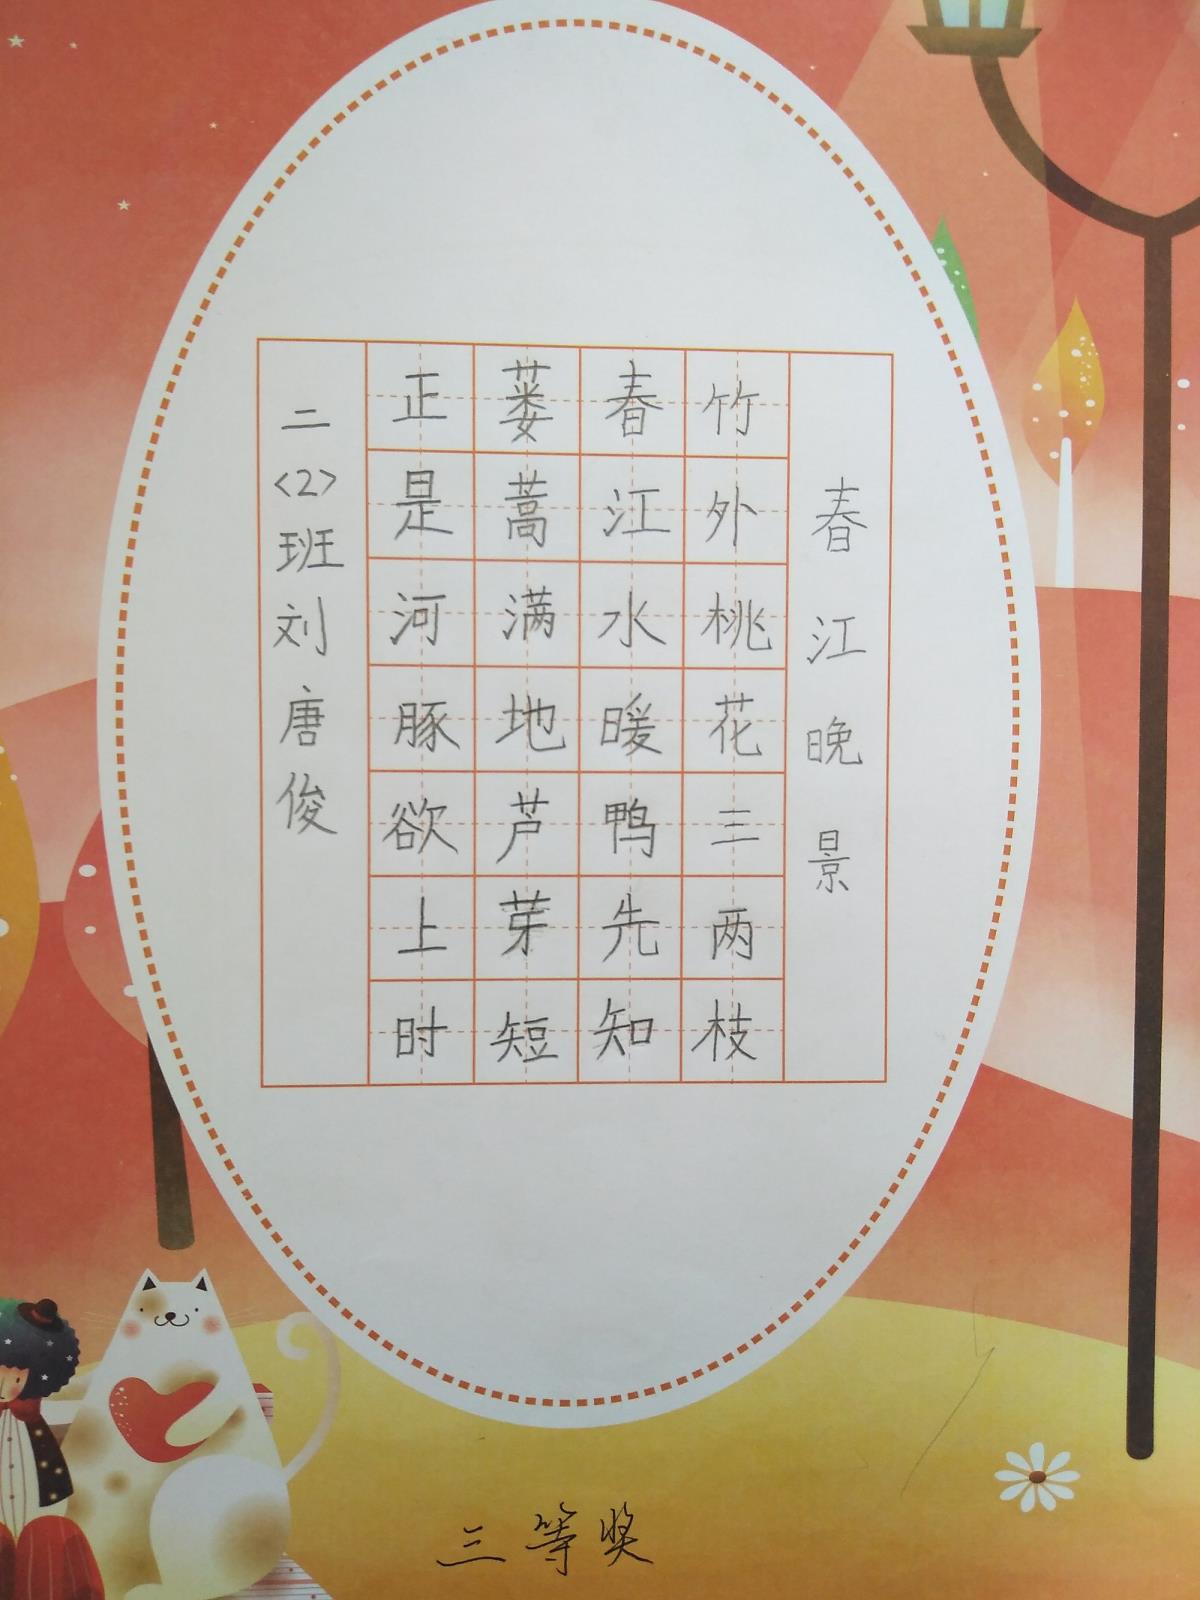 春江晚景
竹外桃花三两枝
春江水暖鸭先知
蒌蒿满地芦芽短
正是河豚欲上时
二<2>班刘唐俊
三等奖